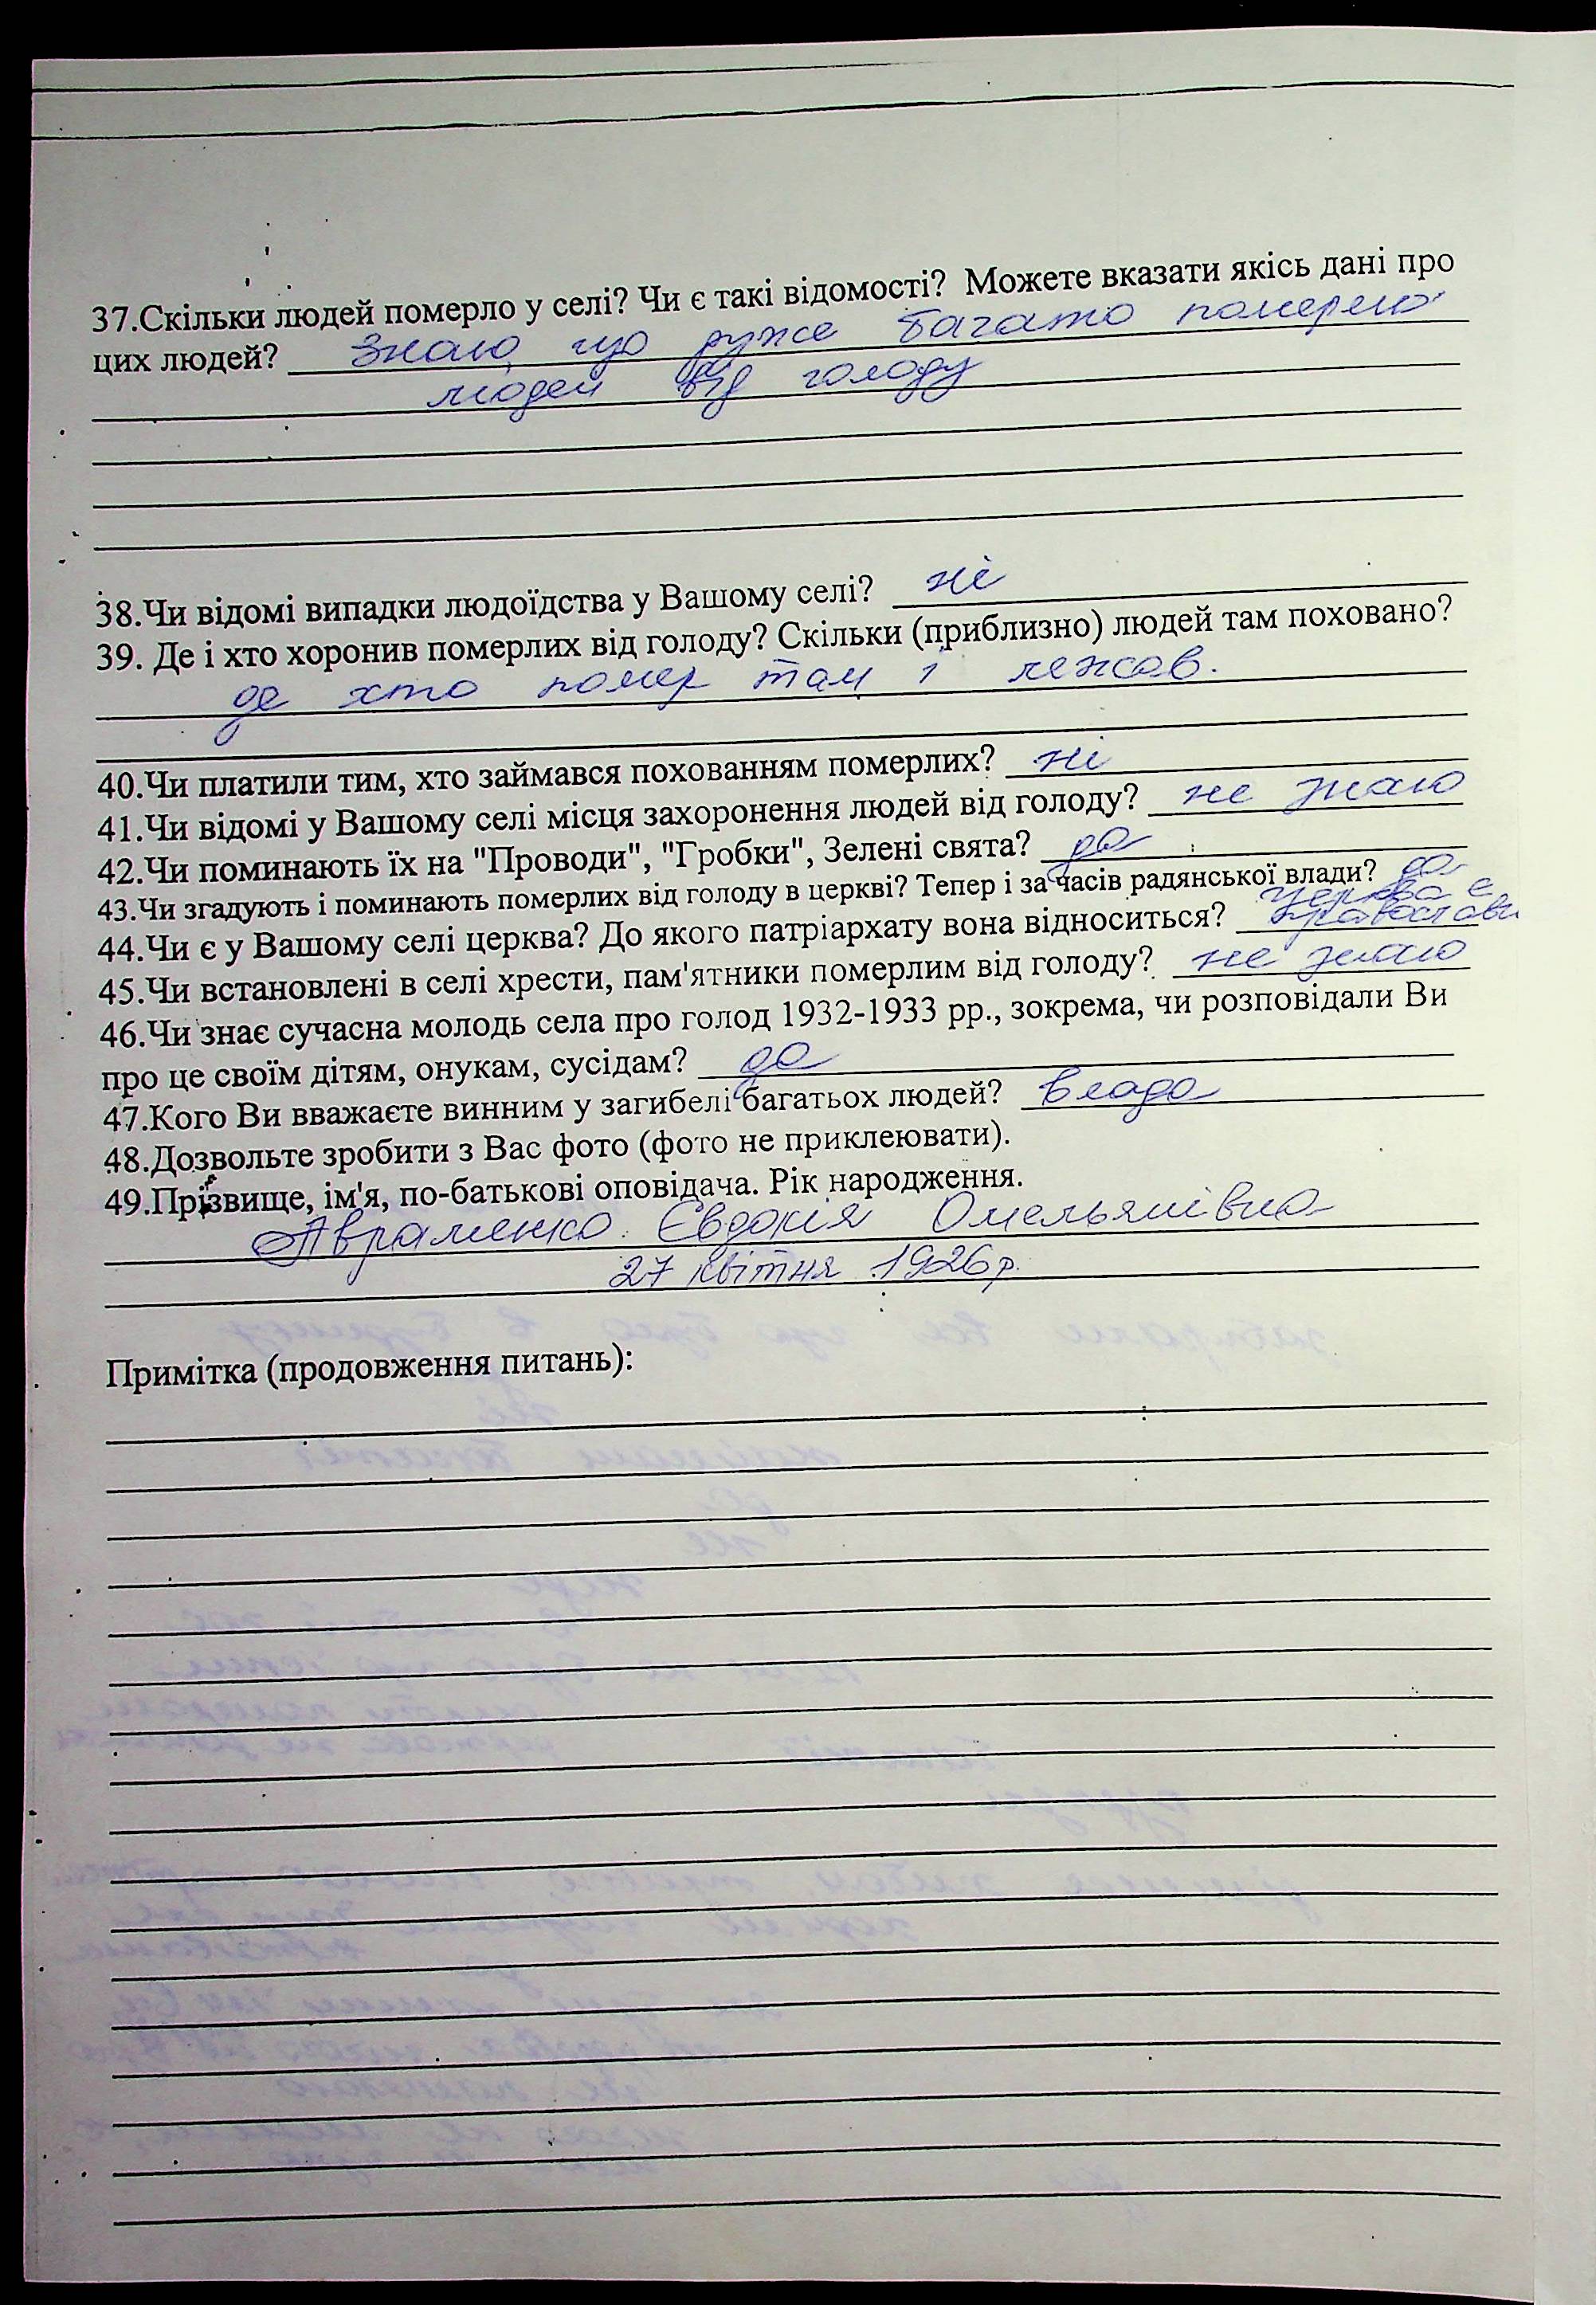 37.Скільки людей померло у селі? Чи є такі відомості? Можете вказати якісь дані про
цих людей? Знаю що дуже багато померло
людей від голоду
38.Чи відомі випадки людоїдства у Вашому селі? ні
39. Де і хто хоронив померлих від голоду? Скільки (приблизно) людей там поховано?
де хто помер там і лежав.
40.Чи платили тим, хто займався похованням померлих? ні
41.Чи відомі у Вашому селі місця захоронення людей від голоду? не знаю
42.Чи поминають їх на "Проводи", "Гробки", Зелені свята? да
43.Чи згадують і поминають померлих від голоду в церкві? Тепер і за часів радянської влади? да
церква є
44.Чи є у Вашому селі церква? До якого патріархату вона відноситься? православн
45.Чи встановлені в селі хрести, пам'ятники померлим від голоду? не знаю
46.Чи знає сучасна молодь села про голод 1932-1933 рр., зокрема, чи розповідали Ви
про це своїм дітям, онукам, сусідам? да
47.Кого Ви вважаєте винним у загибелі багатьох людей? влада
48.Дозвольте зробити з Вас фото (фото не приклеювати).
49.Прізвище, ім'я, по-батькові оповідача. Рік народження.
Авраменко Євдокія Омельянівна
27 квітня 1926р.
Примітка (продовження питань):